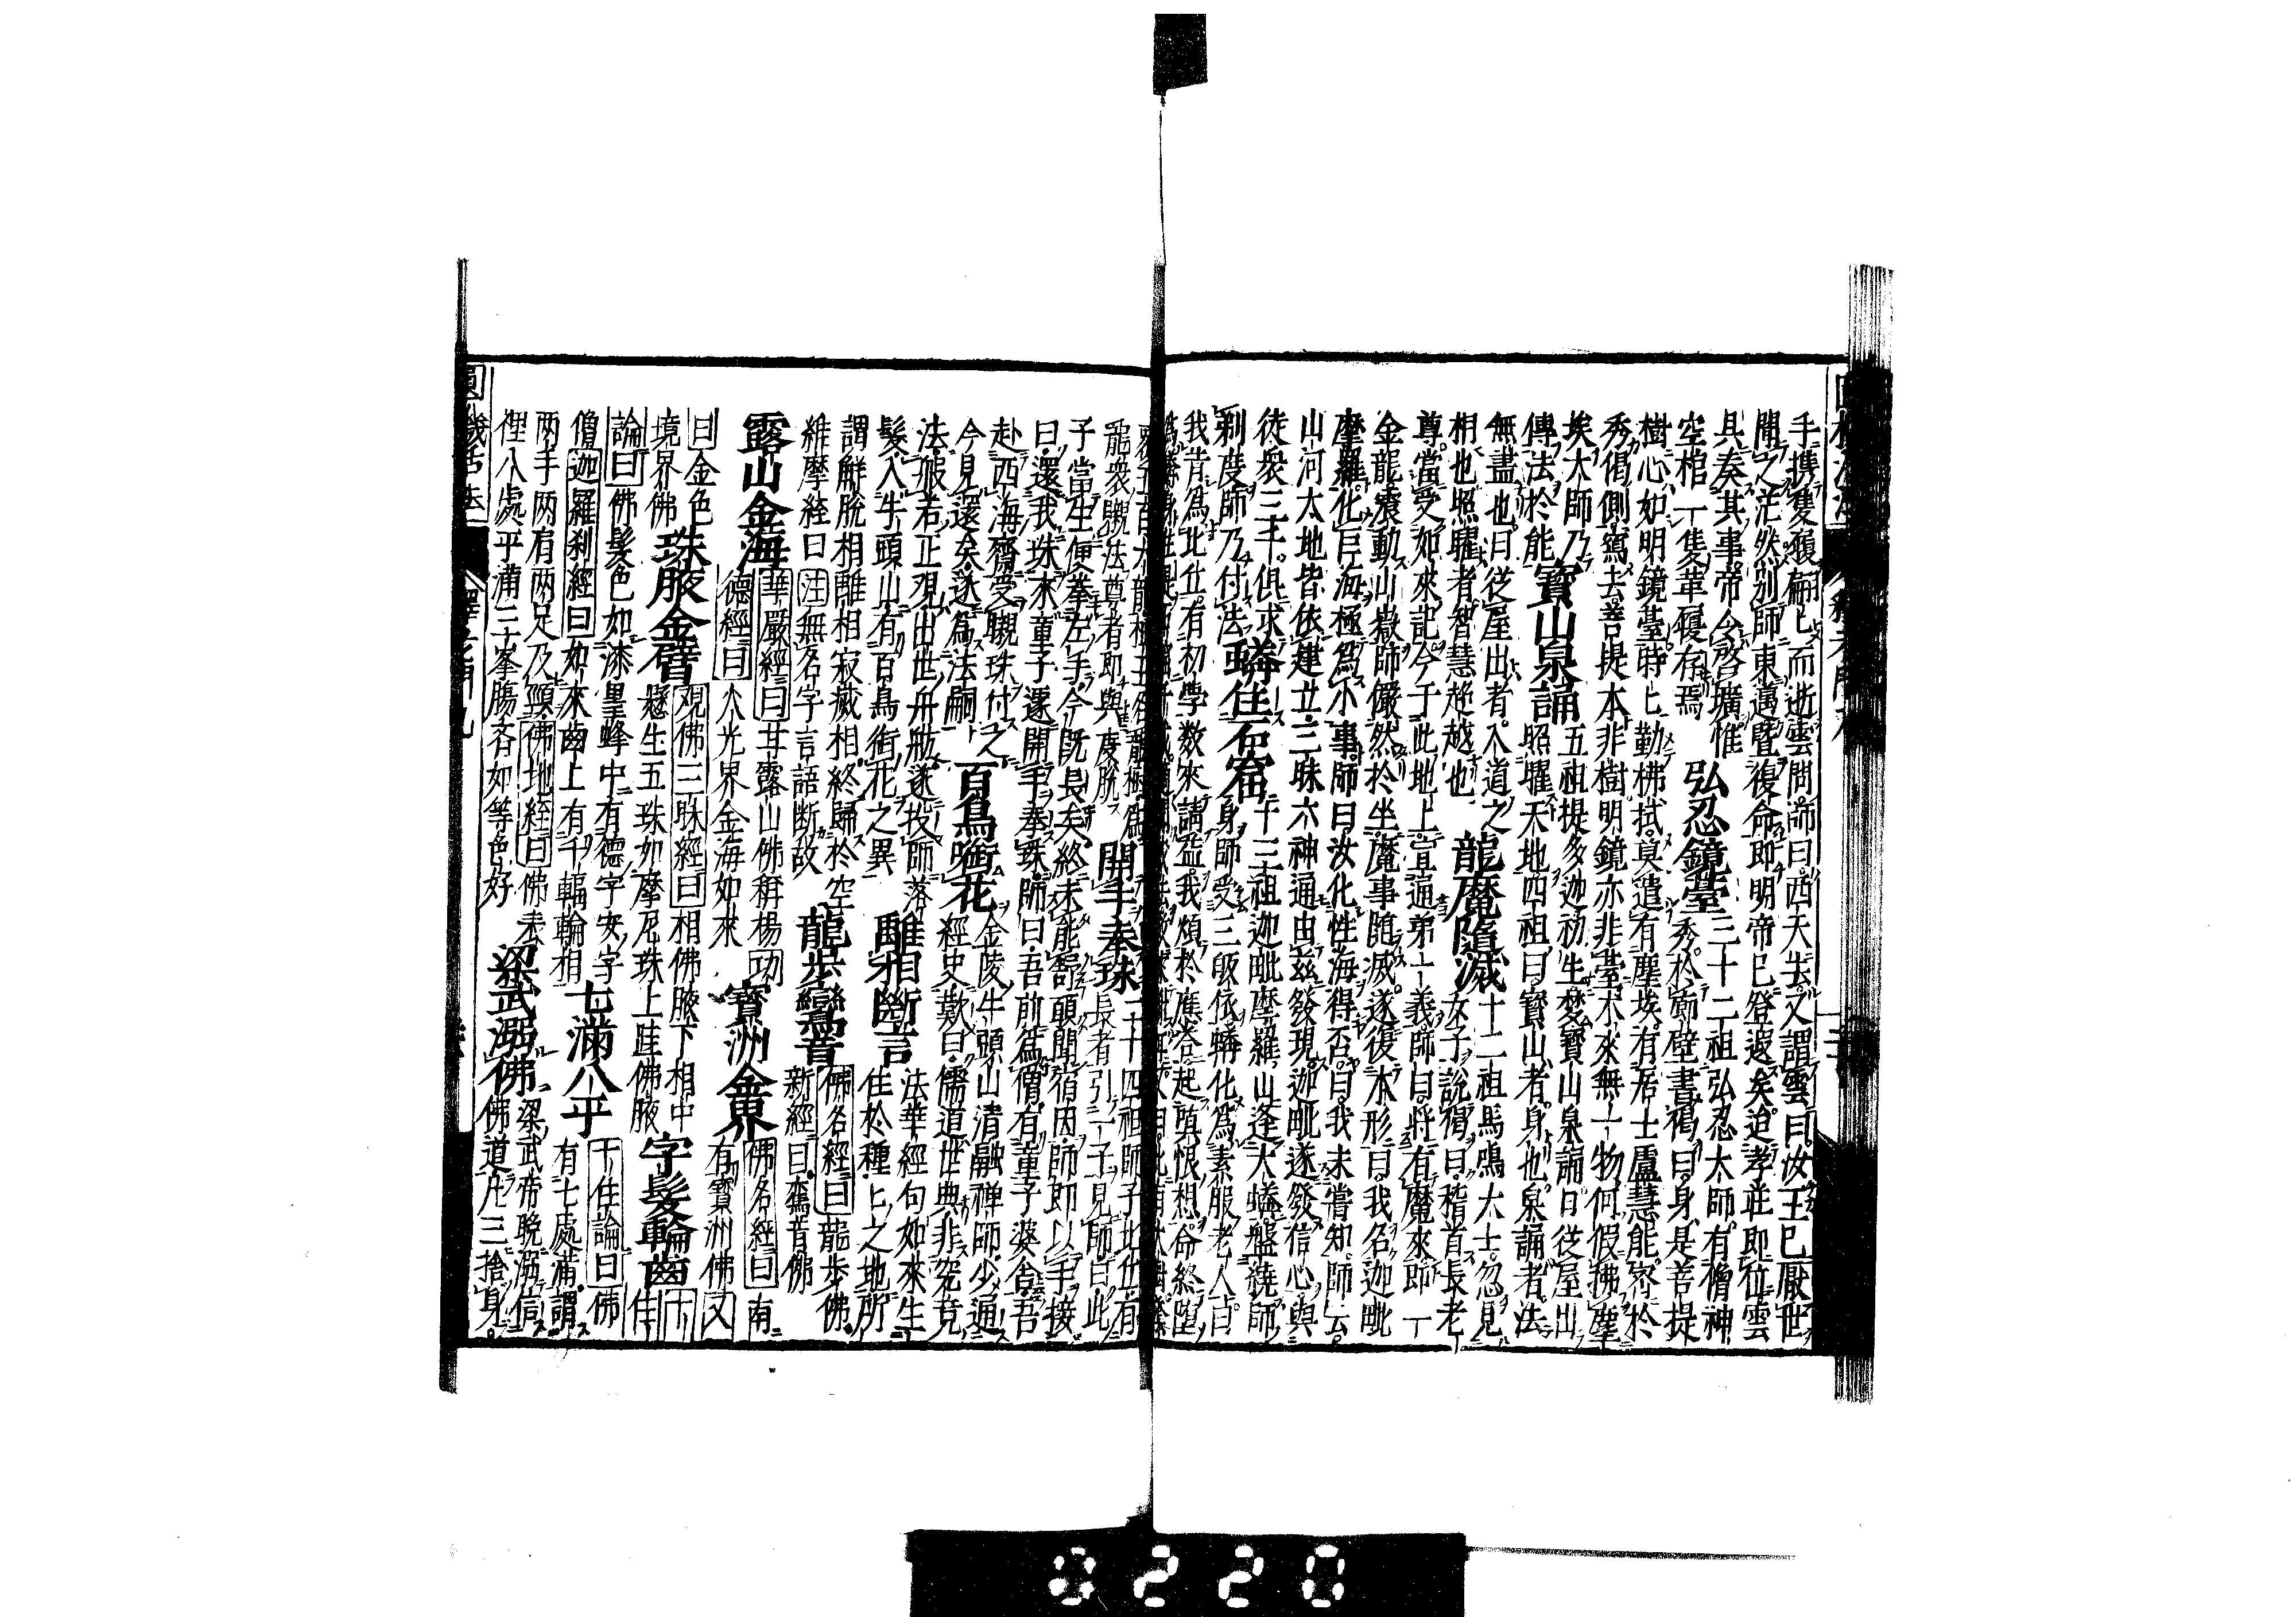 手携隻履翩〻而逝雲問師曰西天去又謂雲曰汝王已厭世
聞之茫然別師東邁暨復命即明帝已登遐矣迨孝莊即位雲
具奏其事帝令啓壙惟
空棺一隻革履存焉
弘忍鏡臺
三十二祖弘忍大師有僧神
秀於廊壁書偈曰身是菩提
樹心如明鏡臺時〻勤拂拭莫遣有塵埃有居士盧慧能密於
秀偈側寫去菩提本非樹明鏡亦非臺本來無一物何假拂塵
埃大師乃
傳法於能
寶山泉誦
五祖提多迦初生夢寶山泉涌日從屋出
照耀天地四祖曰寶山者身也泉誦者法
無盡也日從屋出者入道之
相也照耀者智慧超越也
龍魔隨滅
十二祖馬鳴大士忽見
女子說偈曰稽首長老
尊當受如來記今于此地上宣通第一義師曰將有魔來即一
金龍震動山嶽師儼然於坐魔事隨滅遂復本形曰我名迦毗
摩羅化巨海極爲小事師曰汝化性海得否曰我未嘗知師云
山河大地皆依建立三昧六神通由茲發現迦毗遂發信心與
徒衆三千俱求
剃度師乃付法
蟒住石窟
十三祖迦毗摩羅山逢大蟒盤繞師
身師受三皈依蟒化爲素服老人曰
我昔爲比丘有初學数來請益我煩於應答起嗔恨想命終墮
龍衆聽法尊者即與度脫
開手奉珠
二十四祖師子比丘有
長者引一子見師曰此
子當生便拳左手今既長矣終未能舒願聞宿因師即以手接
曰還我珠來童子遂開手奉珠師曰吾前爲僧有童子婆舍吾
赴西海齋受嚫珠付之
今見還矣遂爲法嗣
百鳥啣花
金陵牛頭山淸融禅師少通
經史歎曰儒道世典非究竟
法般若正观出世舟航遂投師落
髮入牛頭山有百鳥銜花之異
離相斷言
法華經句如來生
住於種〻之地所
謂解脫相離相寂滅相終歸於空
維摩経曰注無名字言語断故
龍步鸞音
佛名經曰龍步佛
新經曰鸞音佛
露山金海
華嚴經曰甘露山佛稱楊功
德經曰火光界金海如來
寶洲金界
佛名經曰南
有寶洲佛又
曰金色
境界佛
珠腋金臂
观佛三昧經曰相佛腋下相中
懸生五珠如摩尼珠上跓佛腋
字髮輪齒
十
住
論曰佛髮色如漆里蜂中有德字安字
僧迦羅刹經曰如來齒上有千輻輪相
七滿八平
十住論曰佛
有七處滿謂
两手两肩两足及頸佛地経曰佛
𦙶八處平
梁武溺佛
梁武帝晚溺信
佛道凡三捨身